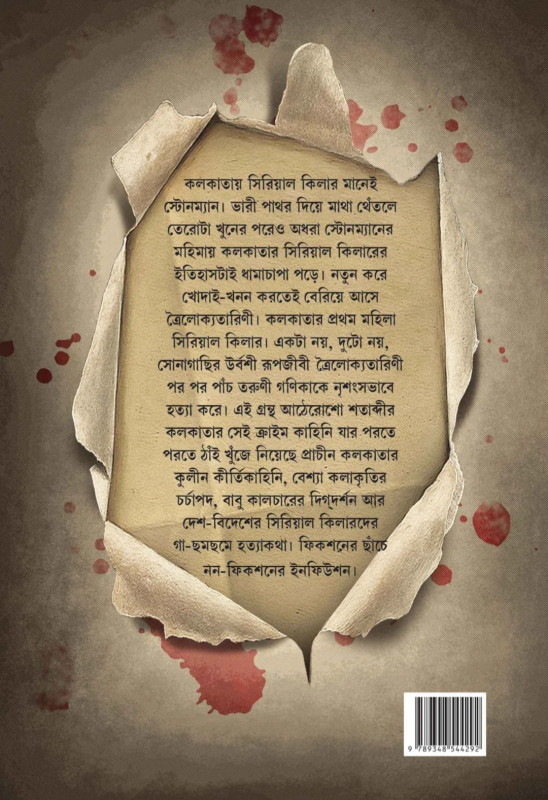 কলকাতায় সিরিয়াল কিলার মানেই
স্টোনম্যান। ভারী পাথর দিয়ে মাথা থেঁতলে
তেরোটা খুনের পরেও অধরা স্টোনম্যানের
মহিমায় কলকাতার সিরিয়াল কিলারের
ইতিহাসটাই ধামাচাপা পড়ে। নতুন করে
খোদাই-খনন করতেই বেরিয়ে আসে
ত্রৈলোক্যতারিণী। কলকাতার প্রথম মহিলা
সিরিয়াল কিলার। একটা নয়, দুটো নয়,
সোনাগাছির উর্বশী রূপজীবী ত্রৈলোক্যতারিণী
পর পর পাঁচ তরুণী গণিকাকে নৃশংসভাবে
হত্যা করে। এই গ্রন্থ আঠেরোশো শতাব্দীর
কলকাতার সেই ক্রাইম কাহিনি যার পরতে
পরতে ঠাঁই খুঁজে নিয়েছে প্রাচীন কলকাতার
কুলীন কীর্তিকাহিনি, বেশ্যা কলাকৃতির
চর্চাপদ, বাবু কালচারের দিগ্‌দর্শন আর
দেশ-বিদেশের সিরিয়াল কিলারদের
গা-ছমছমে হত্যাকথা। ফিকশনের ছাঁচে
নন-ফিকশনের ইনফিউশন।
9 789348 544292